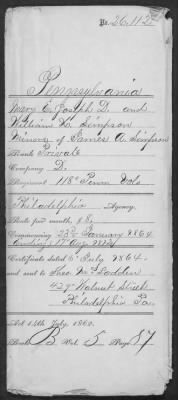 No. 26,112
Pennsylvania
Mary E. Joseph D. and
William H. Simpson
Minors of James A. Simpson
Rank Private
Company D.
Regiment 118" Penn Vols
Philadelphia Agency,
Rate per month, $8.
Commencing 23rd January 1864.
Ending 17" Aug
Certificate dated 6" July 1864.
and sent to
427 Walnut Street
Philadelphia Pa.
Act 14th July, 1862.
Book B Vol. 5 Page 87